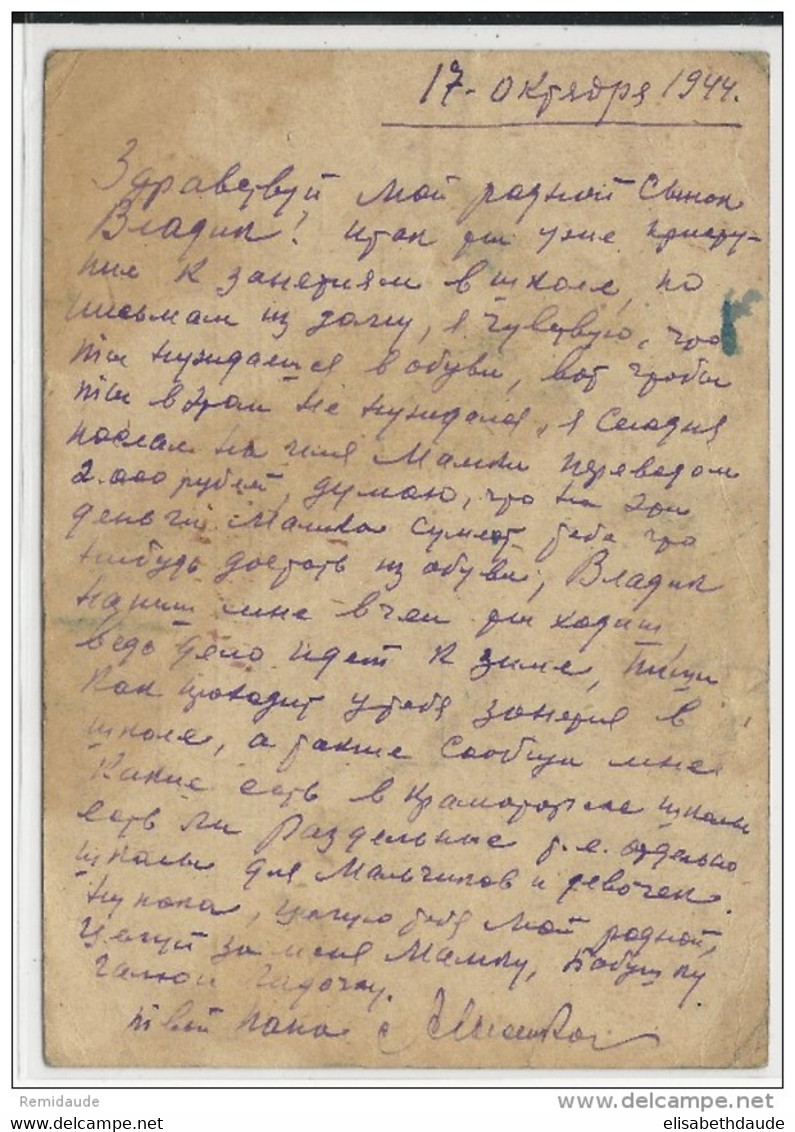 17. октября 1944.
Здравствуй мой родной сынок
Владик! Итак ты уже присту-
пил к занятиям в школе, по
письмам из дому, я чувствую, что
ты нуждаешся в обуви, вот чтобы
ты в этом не нуждался, я сегодня
послал на имя Мамки переводом
2.000 рублей, думаю, что на эти
деньги Мамка сумеет тебе что
нибудь достать из обуви, Владик
напиши мне в чем ты ходиш
ведь дело идет к зиме, пиши
как проходит у тебя занятия в
школе, а также сообщи мне
Какие есть в Краматорске школы
есть ли раздельные т.е. отдельно
школы для мальчиков и девочек.
Ну пока, целую тебя мой родной,
Целуй за меня Мамку, Бабушку
Галю и Ладочку.
твой папа
Remidaude
www.delcampe.net
elisabethdaude
elisabethdaude